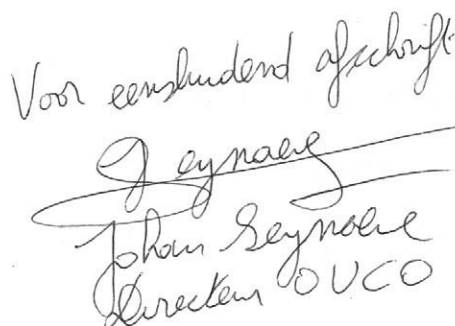 Voor eensluidend afschrift
Seynaeve
Johan Seynaeve
Directeur OVCO